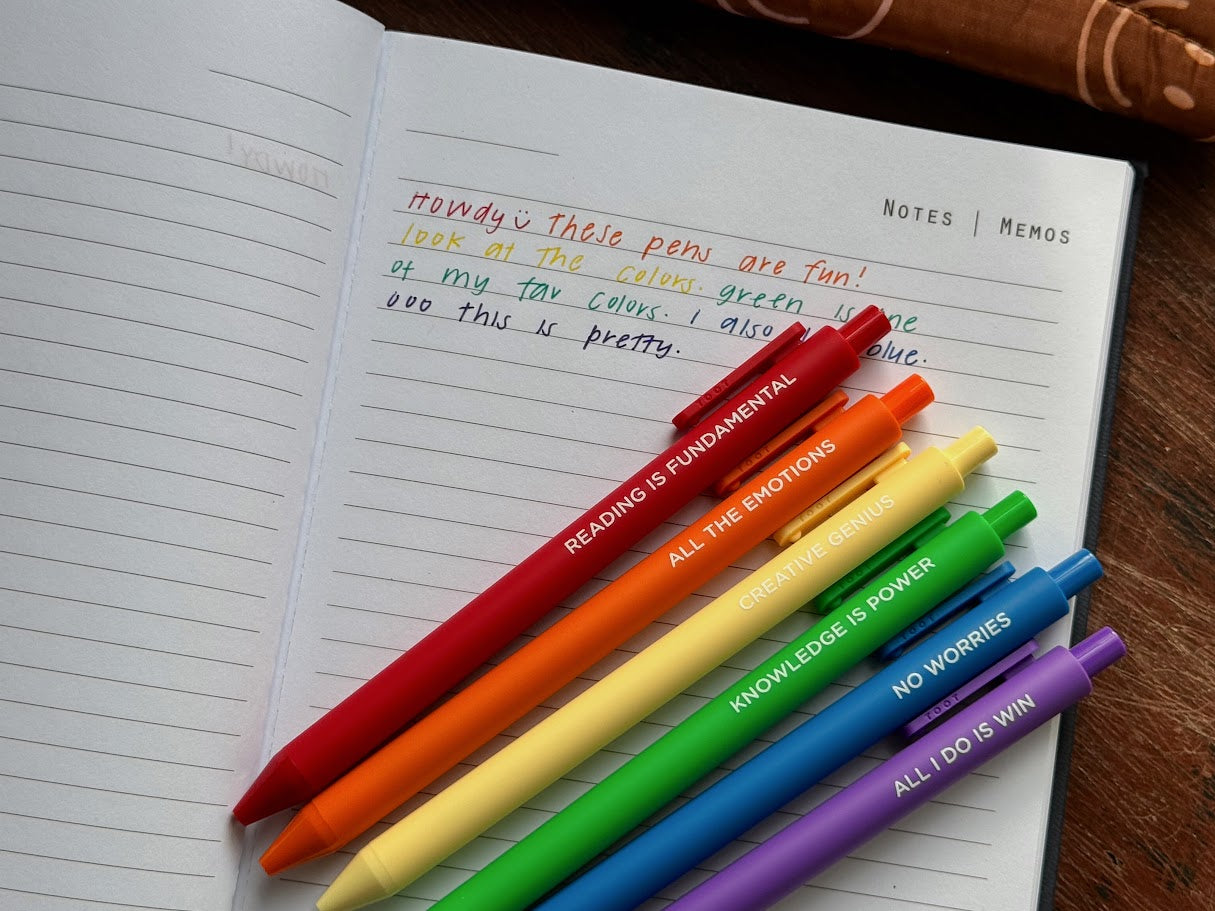 NOTES | MEMOS
Howdy These pens are fun!
look at the colors. green is
of my fav colors. i also
ooo this is pretty.
READING IS FUNDAMENTAL
ALL THE EMOTIONS
CREATIVE GENIUS
KNOWLEDGE IS POWER
NO WORRIES
ALL I DO IS WIN
TOOT
TOOT
TOOT
TOOT
TOOT
TOOT